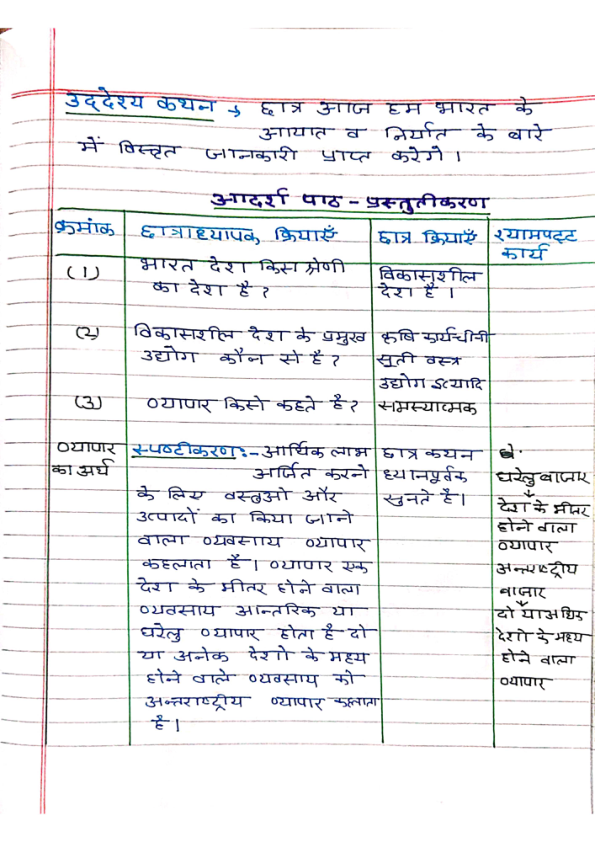 उद्देश्य कथन → छात्र आज हम भारत के
आयात व निर्यात के बारे
में विस्तृत जानकारी प्राप्त करेगे ।
आदर्श पाठ - प्रस्तुतीकरण
क्रमांक
छात्राध्यापक क्रियाएँ
छात्र क्रियाएँ
श्यामपट्ट
कार्य
(1)
भारत देश किस श्रेणी
का देश है ?
विकासशील
देश है ।
(2)
विकासशील देश के प्रमुख
उद्योग कौन से है ?
कृषि कार्य चीनी
सूती वस्त्र
उद्योग इत्यादि
(3)
व्यापार किसे कहते है ?
समस्यात्मक
व्यापार
का अर्थ
स्पष्टीकरण :- आर्थिक लाभ
अर्जित करने
के लिए वस्तुओ और
उत्पादों का किया जाने
वाला व्यवसाय व्यापार
कहलाता है । व्यापार एक
देश के भीतर होने वाला
व्यवसाय आन्तरिक या
घरेलु व्यापार होता है दो
या अनेक देशो के मध्य
होने वाले व्यवसाय को
अन्तराष्ट्रीय व्यापार कहलाता
है ।
छात्र कथन
ध्यानपूर्वक
सुनते है ।
घरेलु बाजार
↓
देश के भीतर
होने वाला
व्यापार
अन्तराष्ट्रीय
बाजार
↓
दो या अधिक
देशो के मध्य
होने वाला
व्यापार